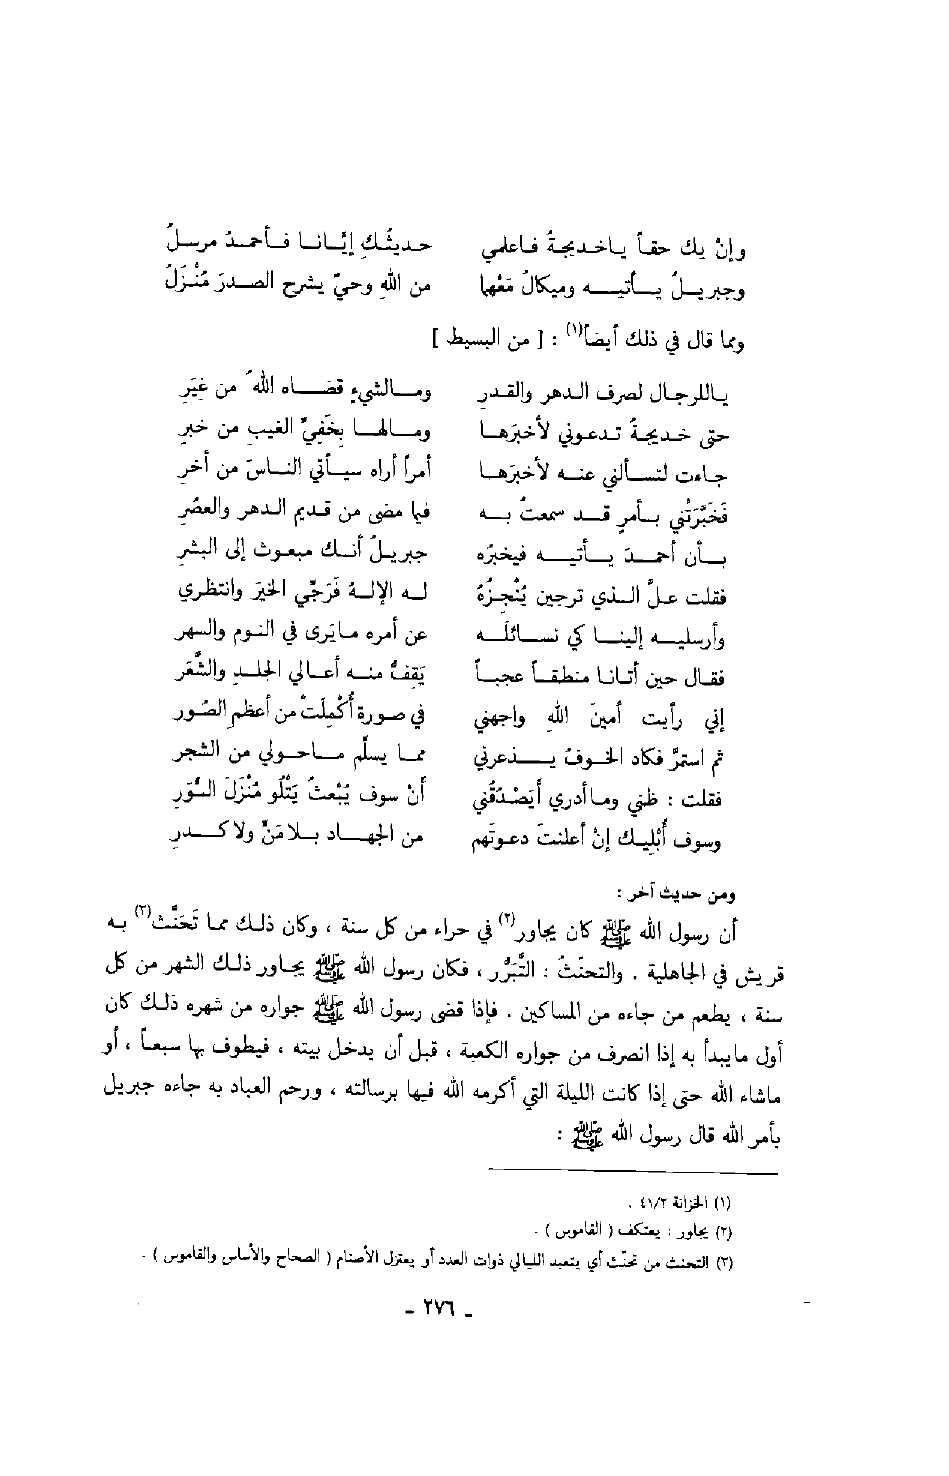 وإنْ يك حقاً ياخديجةُ فاعلمي حديثُكِ إيّانا فأحمدُ مرسلُ
وجبريلُ يأتيه وميكالُ مَعْها من اللهِ وحيٌ يشرح الصدرَ مُنْزَلُ
ومما قال في ذلك أيضاً(١) : [ من البسيط ]
ياللرجال لصرف الدهر والقدرِ ومالشيءٍ قضاه اللهُ من غِيَرِ
حتى خديجةُ تدعوني لأخبرَها ومالها بخَفيِّ الغيبِ من خبرِ
جاءت لتسألني عنه لأخبرَها أمراً أراه سيأتي الناسَ من أُخَرِ
فخَبَّرَتْني بأمرٍ قد سمعتُ به فيما مضى من قديم الدهر والعصُرِ
بأن أحمدَ يأتيه فيخبرُه جبريلُ أنك مبعوث إلى البشرِ
فقلت علَّ الذي ترجين يُنْجِزُهُ له الإلهُ فَرَجِّي الخيرَ وانتظري
وأرسليه إلينا كي نسائلَه عن أمره مايَرى في النوم والسهرِ
فقال حين أتانا منطقاً عجباً يَقِفُّ منه أعالي الجلدِ والشَّعَرِ
إني رأيت أمينَ اللهِ واجهني في صورة أُكْمِلَتْ من أعظم الصُورِ
ثم استمرَّ فكاد الخوفُ يذعرني مما يسلّم ماحولي من الشجرِ
فقلت : ظني وماأدري أيَصْدُقُني أنْ سوف يُبْعثُ يَتْلُو مُنْزَلَ السُّوَرِ
وسوف أُبْليك إنْ أعلنتَ دعوتَهم من الجهاد بلامَنٍّ ولاكدرِ
ومن حديث آخر :
أن رسول الله ﷺ كان يجاور(٢) في حراء من كل سنة ، وكان ذلك مما تَحَنَّث(٣) به
قريش في الجاهلية . والتحنّثُ : التَّبَرُّر ، فكان رسول الله ﷺ يجاور ذلك الشهر من كل
سنة ، يطعم من جاءه من المساكين . فإذا قضى رسول الله ﷺ جواره من شهره ذلك كان
أول مايبدأ به إذا انصرف من جواره الكعبة ، قبل أن يدخل بيته ، فيطوف بها سبعاً ، أو
ماشاء الله حتى إذا كانت الليلة التي أكرمه الله فيها برسالته ، ورحم العباد به جاءه جبريل
بأمر الله قال رسول الله ﷺ :
(١) الخزانة ٤١/٢ .
(٢) يجاور : يعتكف ( القاموس ) .
(٣) التحنث من تحنّث أي يتعبد الليالي ذوات العدد أو يعتزل الأصنام ( الصحاح والأساس والقاموس ) .
- ٢٧٦ -